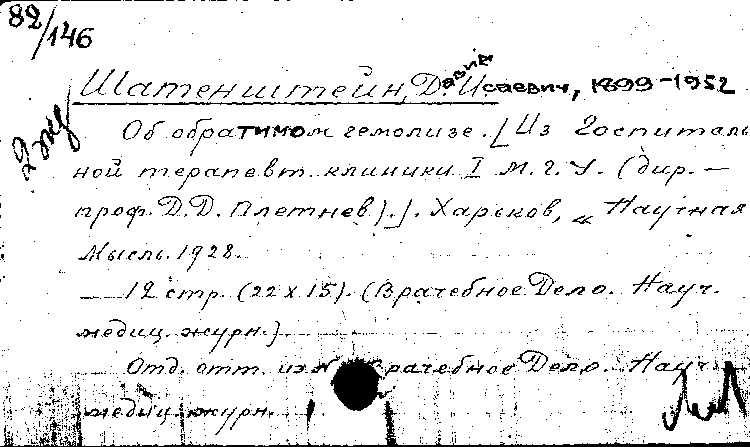 82/146
Шатенштейн, Давид Исаевич, 1899-1952
2 экз
Об обратимом гемолизе. [Из Госпиталь
ной терапевт. клиники I М.Г.У. (дир. —
проф. Д.Д. Плетнев).]. Харьков, „Научная
Мысль. 1928.
— 12 стр. (22 x 15). (Врачебное Дело. Науч.
медиц. журн.)
Отд. отт. из Врачебное Дело. Науч
медиц. журн.